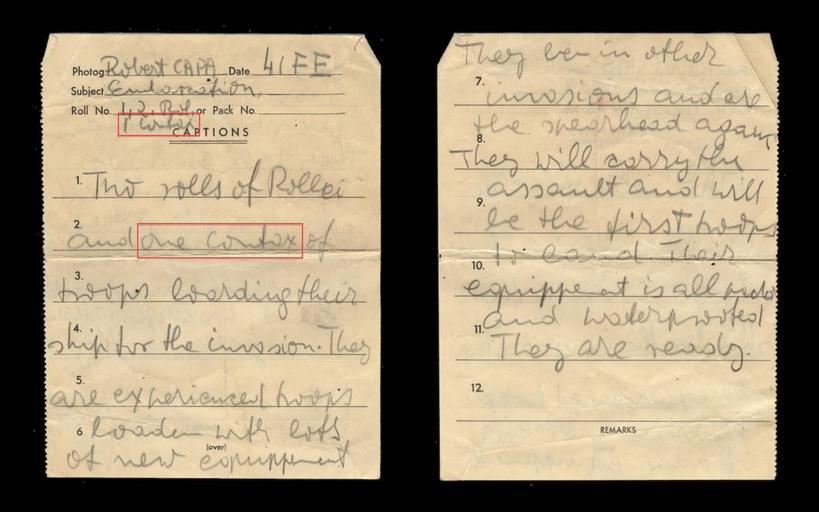 Photog. Robert CAPA Date 4/FE
Subject Embarcation,
Roll No. 1,2. Rol, or Pack No.
1 contax
CAPTIONS
1. Two rolls of Rollei
2. and one contax of
3. troops loarding their
4. ship for the invasion. They
5. are experienced troops
6 loaden with lots
(over)
of new equippement
They ben in other
7. invasions and are
the spearhead again
8. They will carry the
assault and will
9. be the first troops
to land. Their
10. equippement is all packed
and waterprooted
11. They are ready.
12.
REMARKS